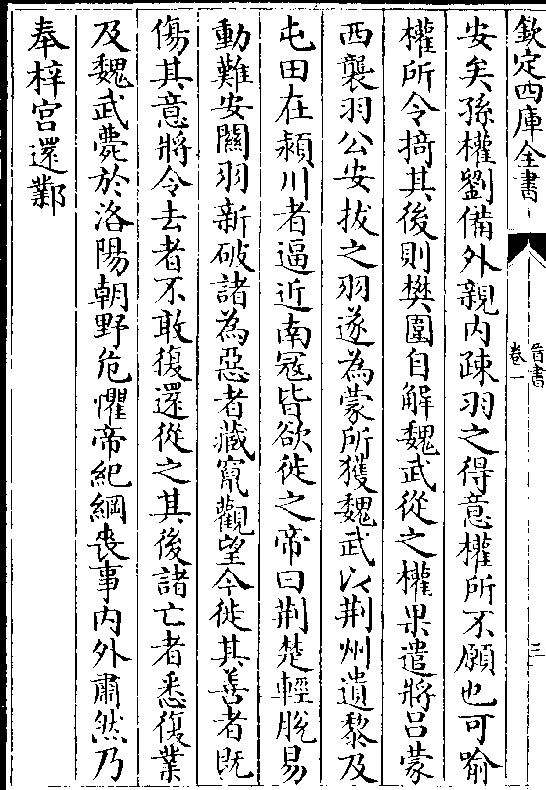 欽定四庫全書
晉書
卷一
三
安矣孫權劉備外親内疎羽之得意權所不願也可喻
權所令掎其後則樊圍自解魏武從之權果遣將吕蒙
西襲羽公安拔之羽遂為蒙所獲魏武以荆州遺黎及
屯田在潁川者逼近南冦皆欲徙之帝曰荆楚輕脱易
動難安關羽新破諸為惡者藏竄觀望今徙其善者既
傷其意將令去者不敢復還從之其後諸亡者悉復業
及魏武薨於洛陽朝野危懼帝紀綱喪事内外肅然乃
奉梓宫還鄴